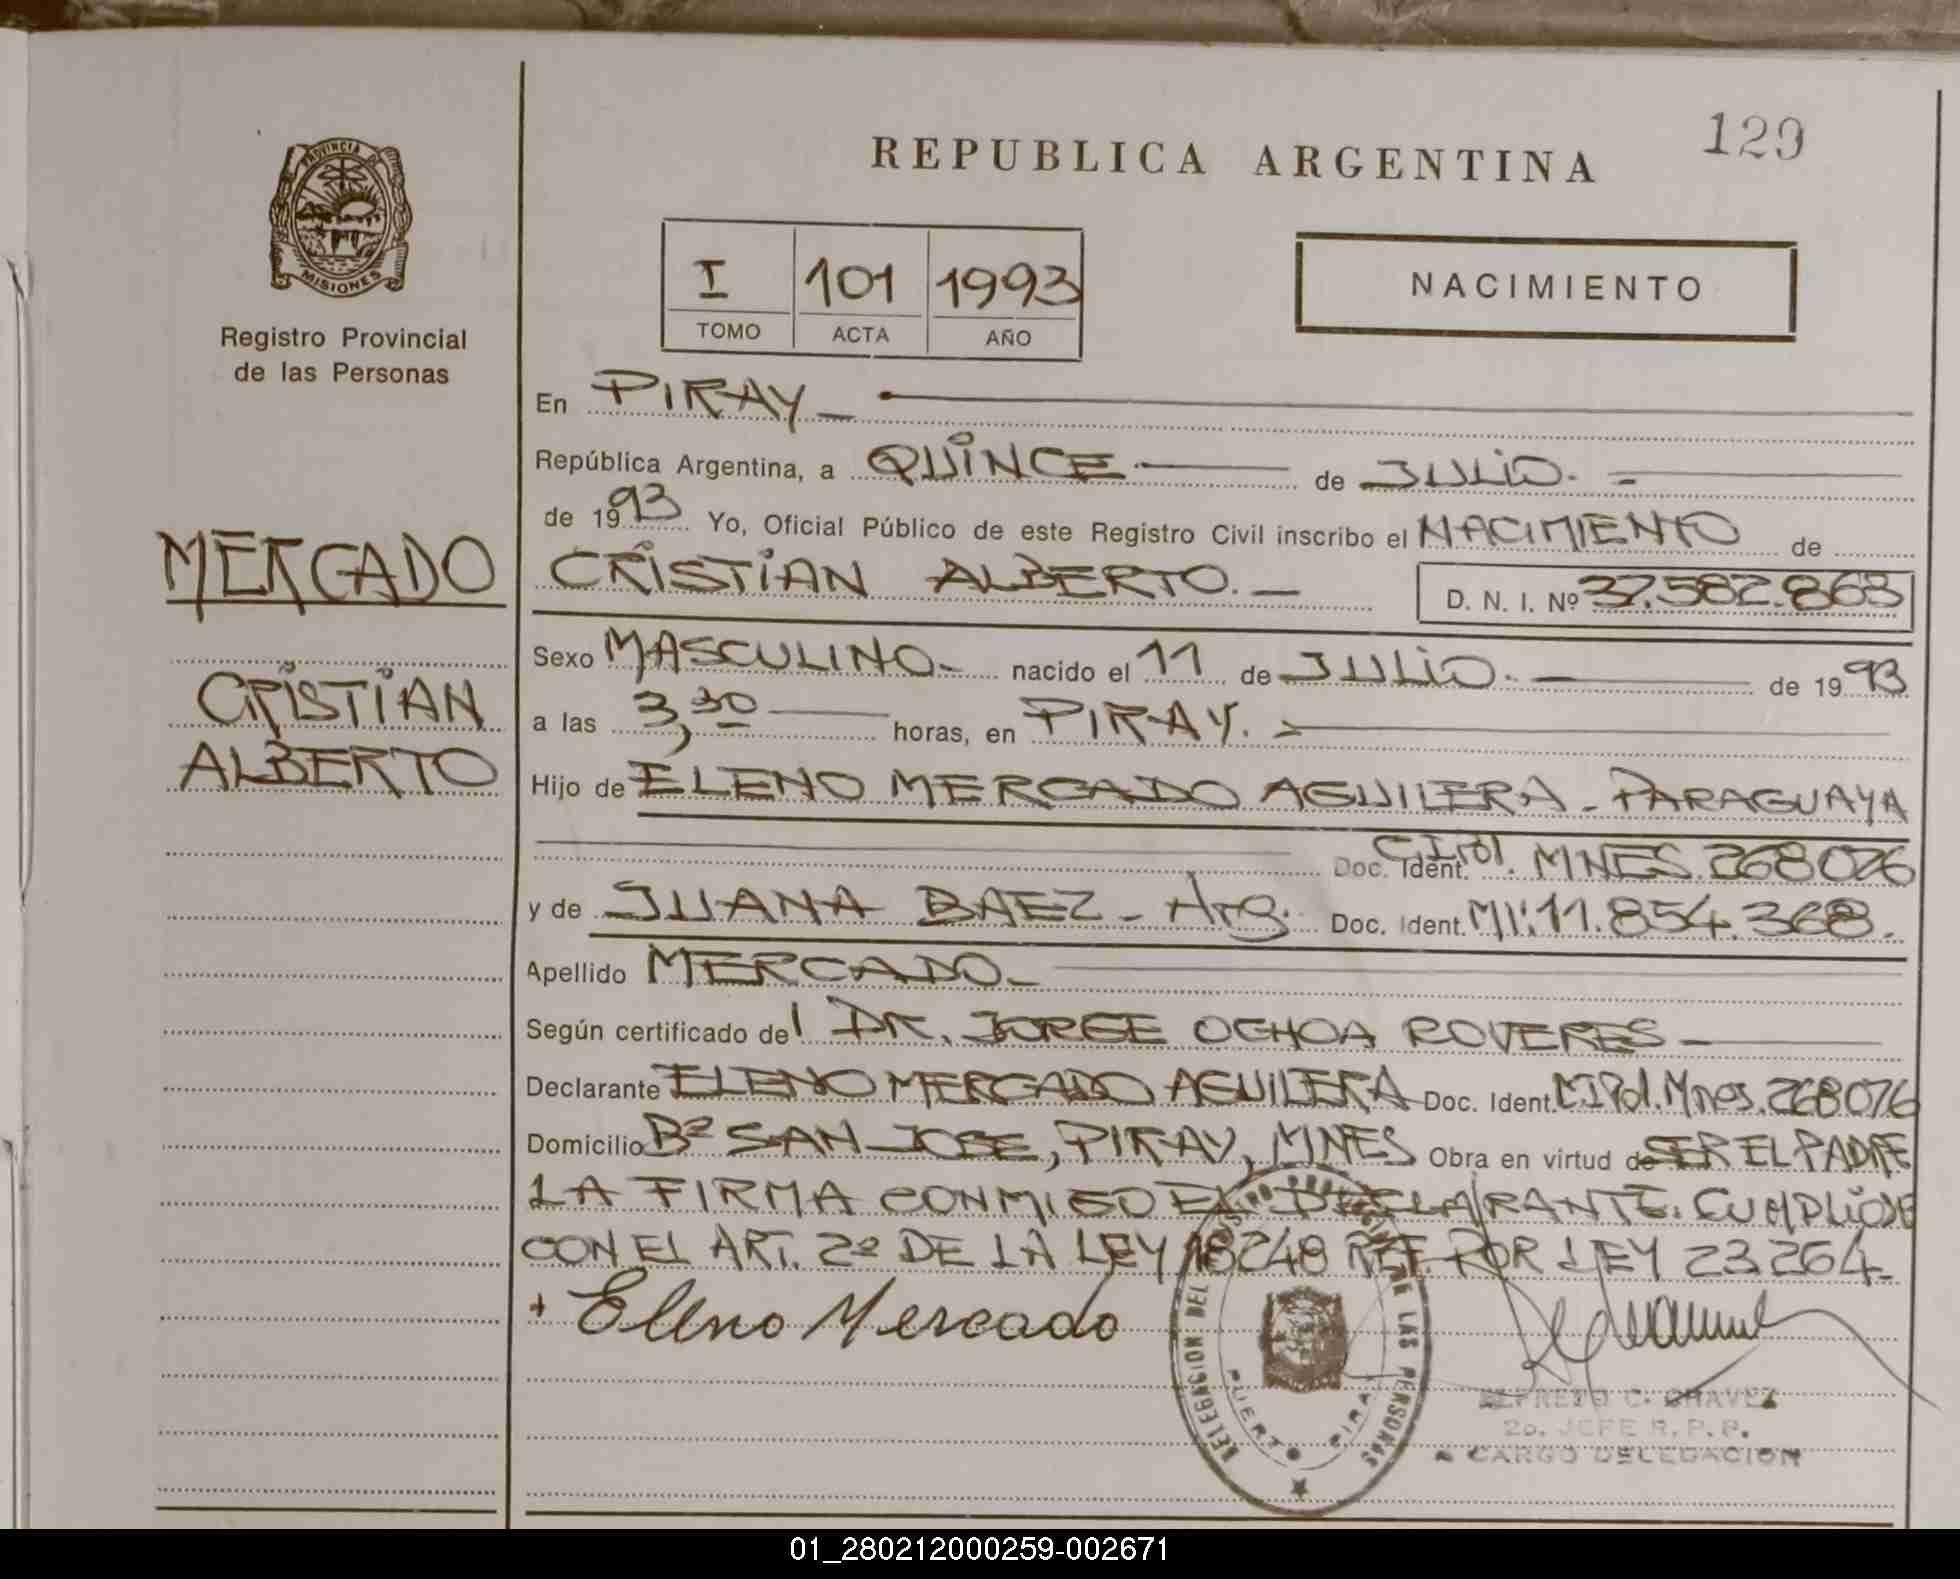 129
REPUBLICA ARGENTINA
PROVINCIA DE
MISIONES
Registro Provincial
de las Personas
I 101 1993
TOMO ACTA AÑO
NACIMIENTO
En PIRAY
República Argentina, a QUINCE de JULIO.
de 1993 Yo, Oficial Público de este Registro Civil inscribo el NACIMIENTO de
CRISTIAN ALBERTO. D. N. I. Nº 37.582.863
MERCADO
CRISTIAN
ALBERTO
Sexo MASCULINO nacido el 11 de JULIO. de 1993
a las 3,30 horas, en PIRAY.
Hijo de ELENO MERCADO AGUILERA - PARAGUAYA
Doc. Ident. C.I.Pol. MNES. 268076
y de JUANA BAEZ - Arg. Doc. Ident. MI: 11.854.368.
Apellido MERCADO
Según certificado del DR. JORGE OCHOA ROVERES
Declarante ELENO MERCADO AGUILERA Doc. Ident. C.I Pol. Mnes. 268076
Domicilio Bº SAN JOSE, PIRAY, MNES Obra en virtud de SER EL PADRE
LA FIRMA CONMIGO EL DECLARANTE. CUMPLIOSE
CON EL ART. 2º DE LA LEY 18248 REF. POR LEY 23.264
+ Eleno Mercado
DELEGACION DEL DE LAS PERSONAS
PUERTO PIRAY
ALFREDO C. CHAVEZ
2o. JEFE R. P. P.
A CARGO DELEGACION
01_280212000259-002671